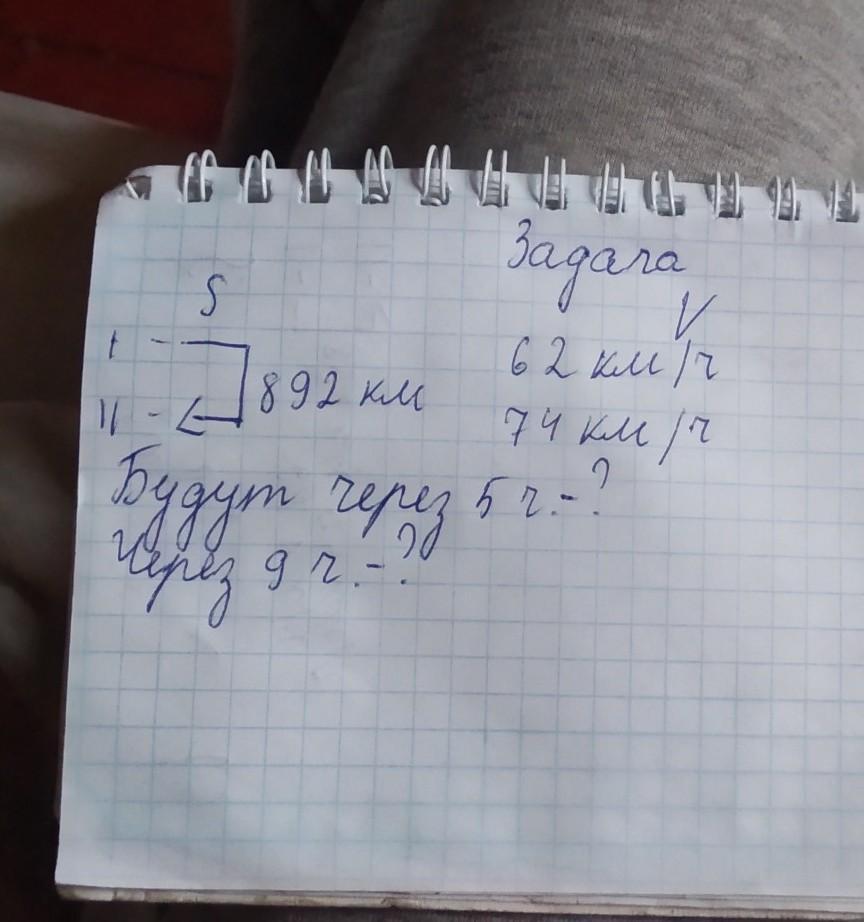 Задача
S V
I - 62 км/ч
892 км
II - 74 км/ч
Будут через 5 ч.-?
Через 9 ч.-?